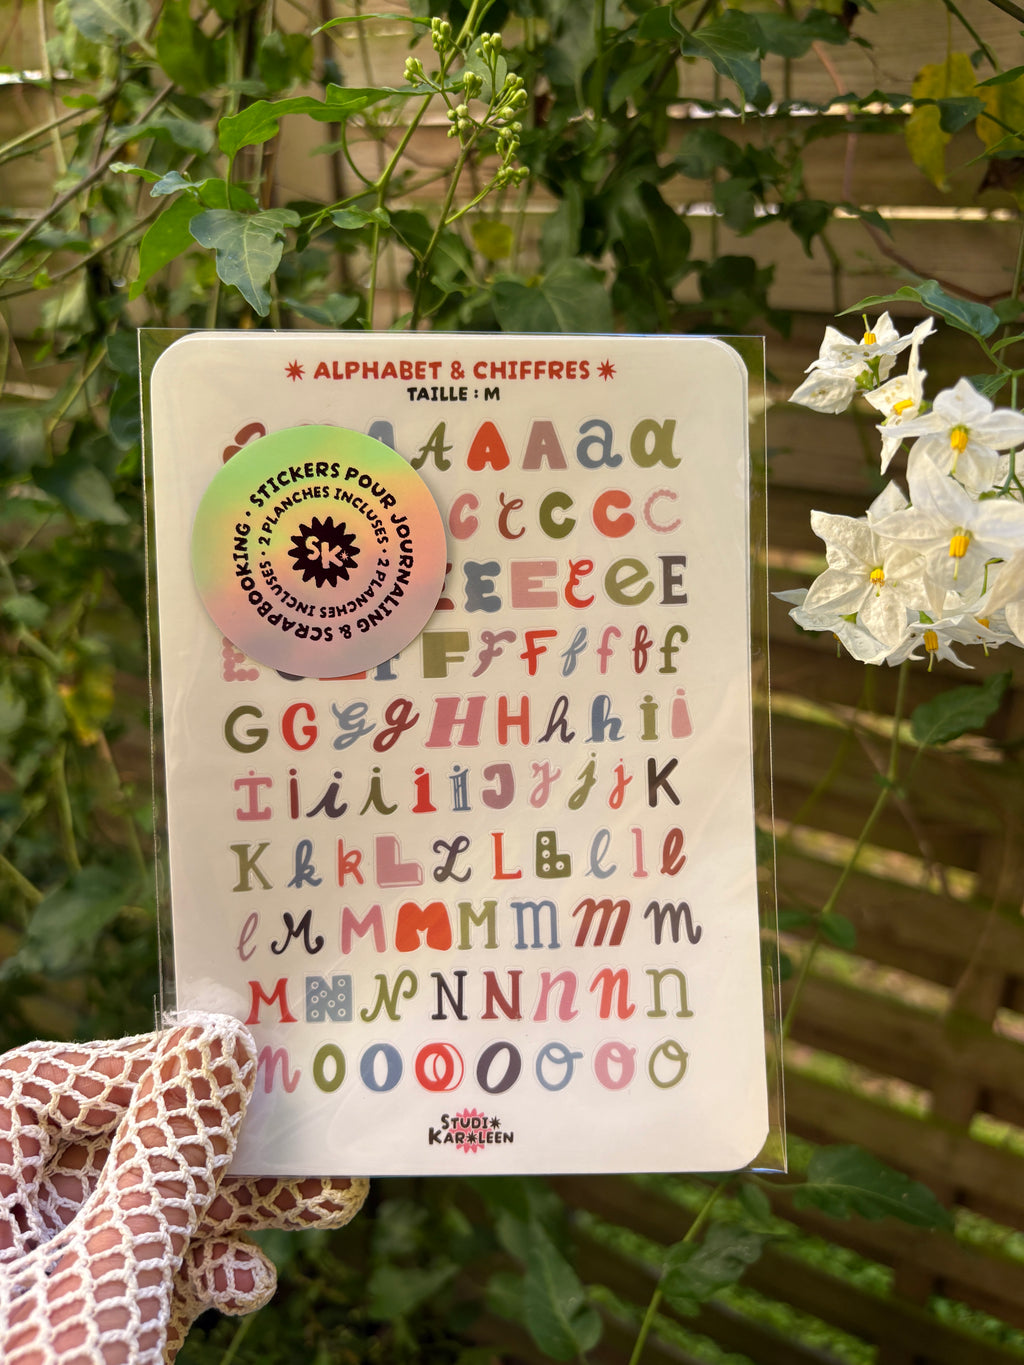 ★ ALPHABET & CHIFFRES ★
TAILLE : M
A A A A a a
STICKERS POUR JOURNALING & SCRAPBOOKING •
2 PLANCHES INCLUSES • 2 PLANCHES INCLUSES •
SK
c c C C C
E E E e E
E F F F f f f f f
G G G g H H h h i i
I i i i i i J J j j K
K k k L L L L l l l
l M M M M m m m
M N N N N n n n
n O O O O O O O
STUDIO
KAROLEEN